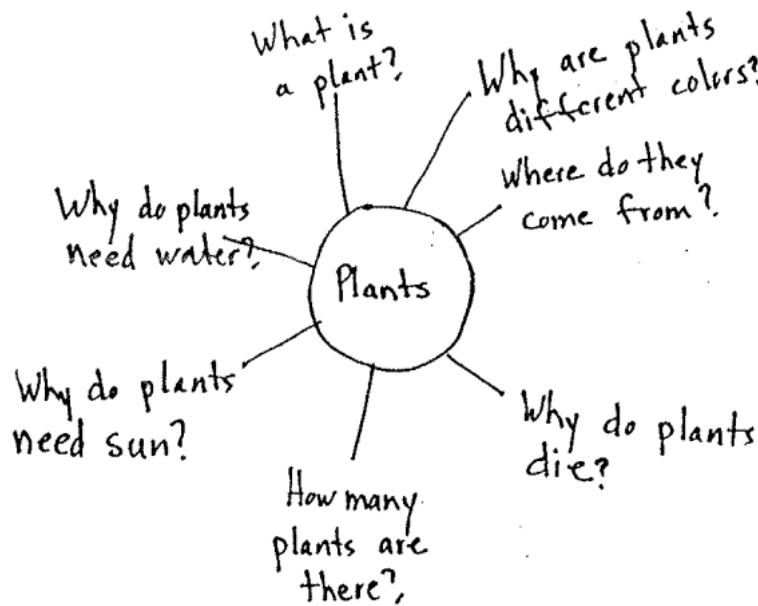 What is
a plant?
Why are plants
different colors?
Where do they
come from?
Why do plants
die?
How many
plants are
there?
Why do plants
need sun?
Why do plants
need water?
Plants